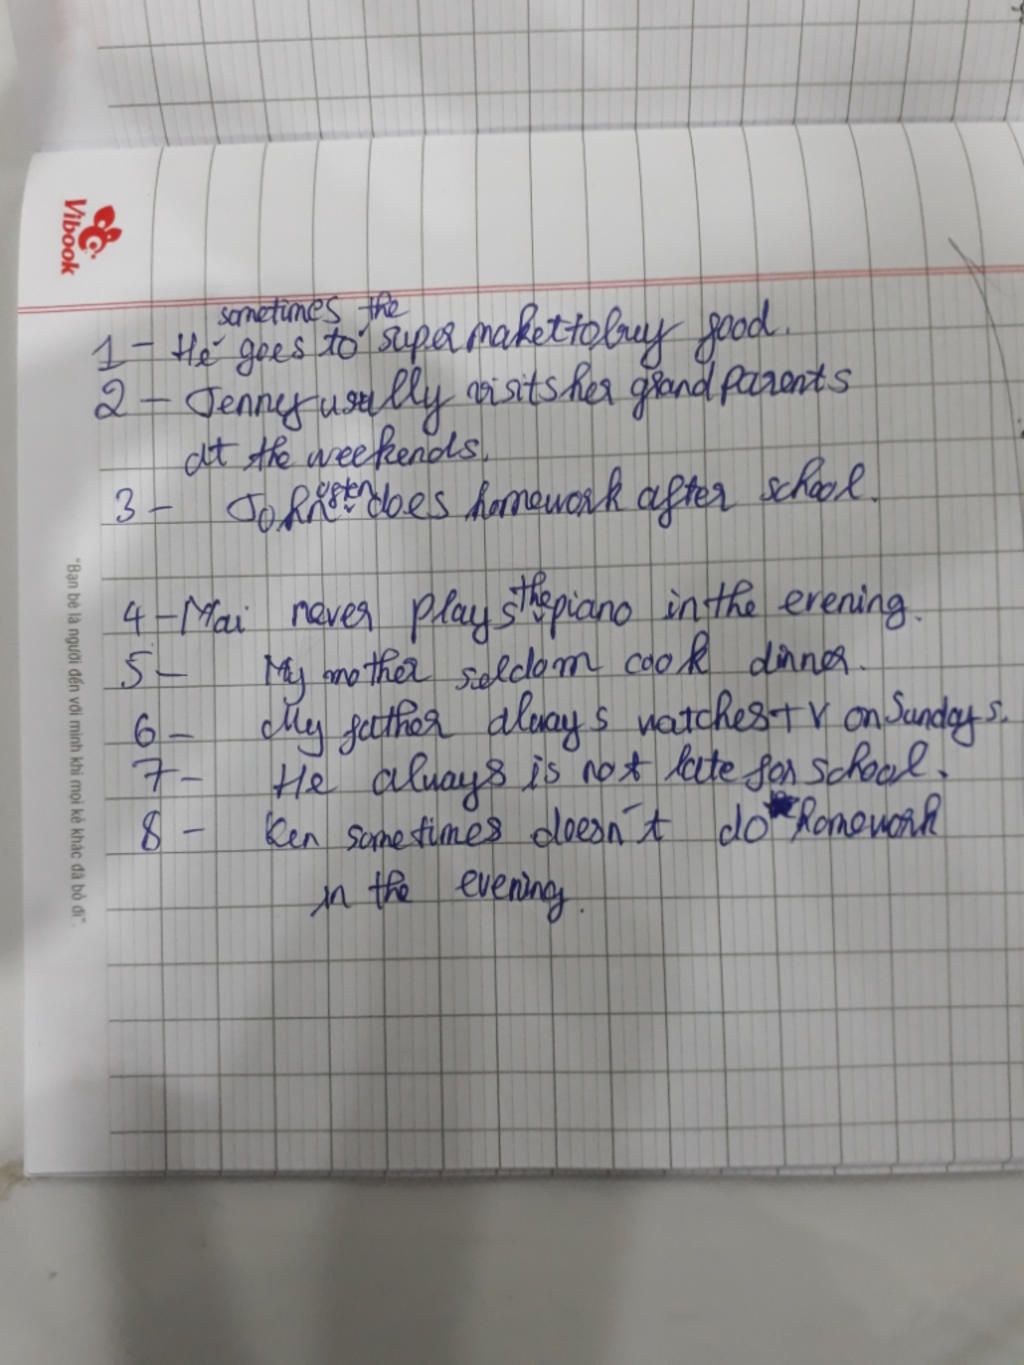 Vibook
sometimes the
1 - He goes to supermaket to buy good.
2 - Jenny usually visits her grandparents
at the weekends.
often
3 - John does homework after school.
the
4 - Mai never plays piano in the evening.
5 - My mother seldom cook dinner.
6 - My father always watches TV on Sundays.
7 - He always is not late for school.
8 - Ken sometimes doesn't do homework
in the evening.
"Bạn bè là người đến với mình khi mọi kẻ khác đã bỏ đi".